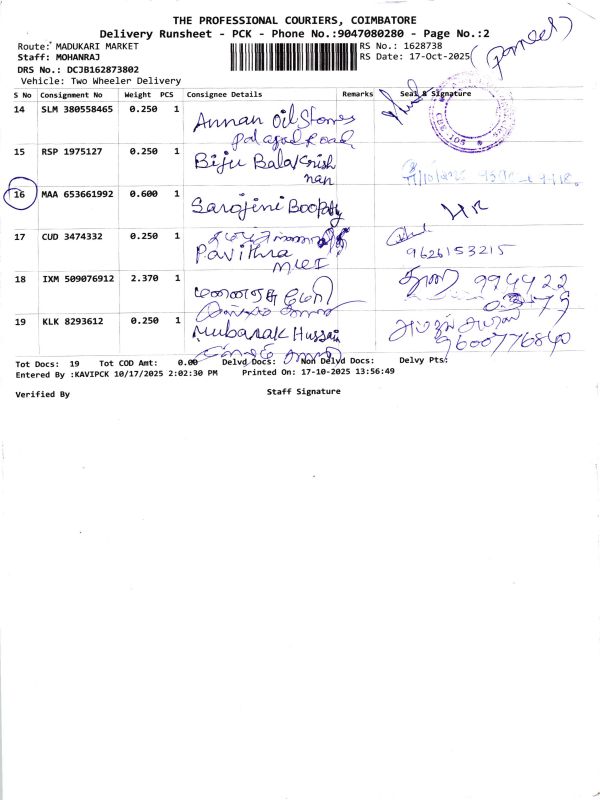 THE PROFESSIONAL COURIERS, COIMBATORE
Delivery Runsheet - PCK - Phone No.:9047080280 - Page No.:2
Route: MADUKARI MARKET
RS No.: 1628738
Staff: MOHANRAJ
RS Date: 17-Oct-2025
DRS No.: DCJB162873802
Vehicle: Two Wheeler Delivery
S No Consignment No Weight PCS Consignee Details Remarks Seal & Signature
14 SLM 380558465 0.250 1 Annan Oil Stores
Road
15 RSP 1975127 0.250 1 Biju Balakrish
nan
16 MAA 653661992 0.600 1 Sarojini Boopathy
17 CUD 3474332 0.250 1
Pavithra 9626153215
18 IXM 509076912 2.370 1 994422
19 KLK 8293612 0.250 1 Mubarak Hussain
9600776840
Tot Docs: 19 Tot COD Amt: 0.00 Delvd Docs: Non Delvd Docs: Delvy Pts:
Entered By :KAVIPCK 10/17/2025 2:02:30 PM Printed On: 17-10-2025 13:56:49
Verified By Staff Signature